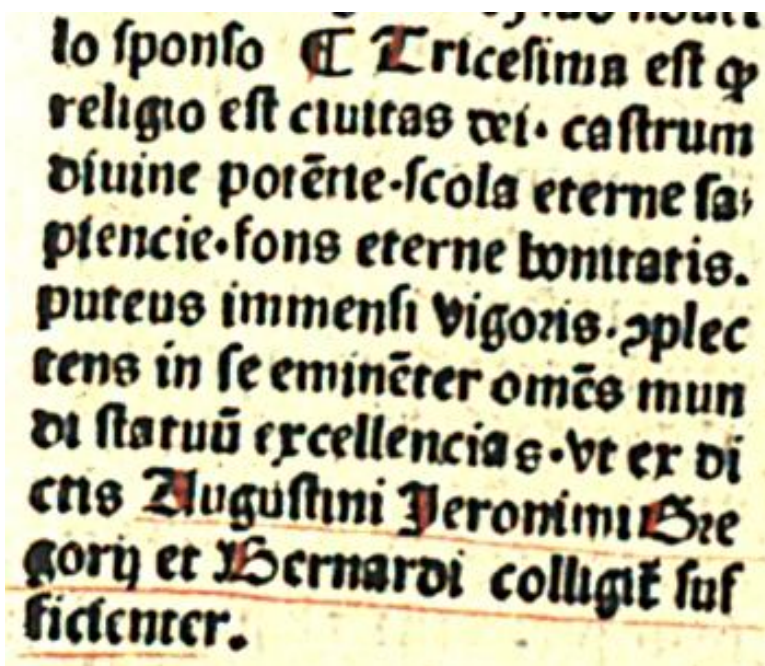 lo ſponſo ¶ Triceſima eſt ꝙ
religio eſt ciuitas dei. caſtrum
diuine potētie.ſcola eterne ſa⸗
piencie.fons eterne bonitatis.
puteus immenſi vigoꝛis.ꝯplec
tens in ſe eminēter omēs mun
di ſtatuū excellencias.vt ex di
ctis Auguſtini Jeronimi Gꝛe
gorij et Bernardi colligit᷑ ſuf
ficienter.